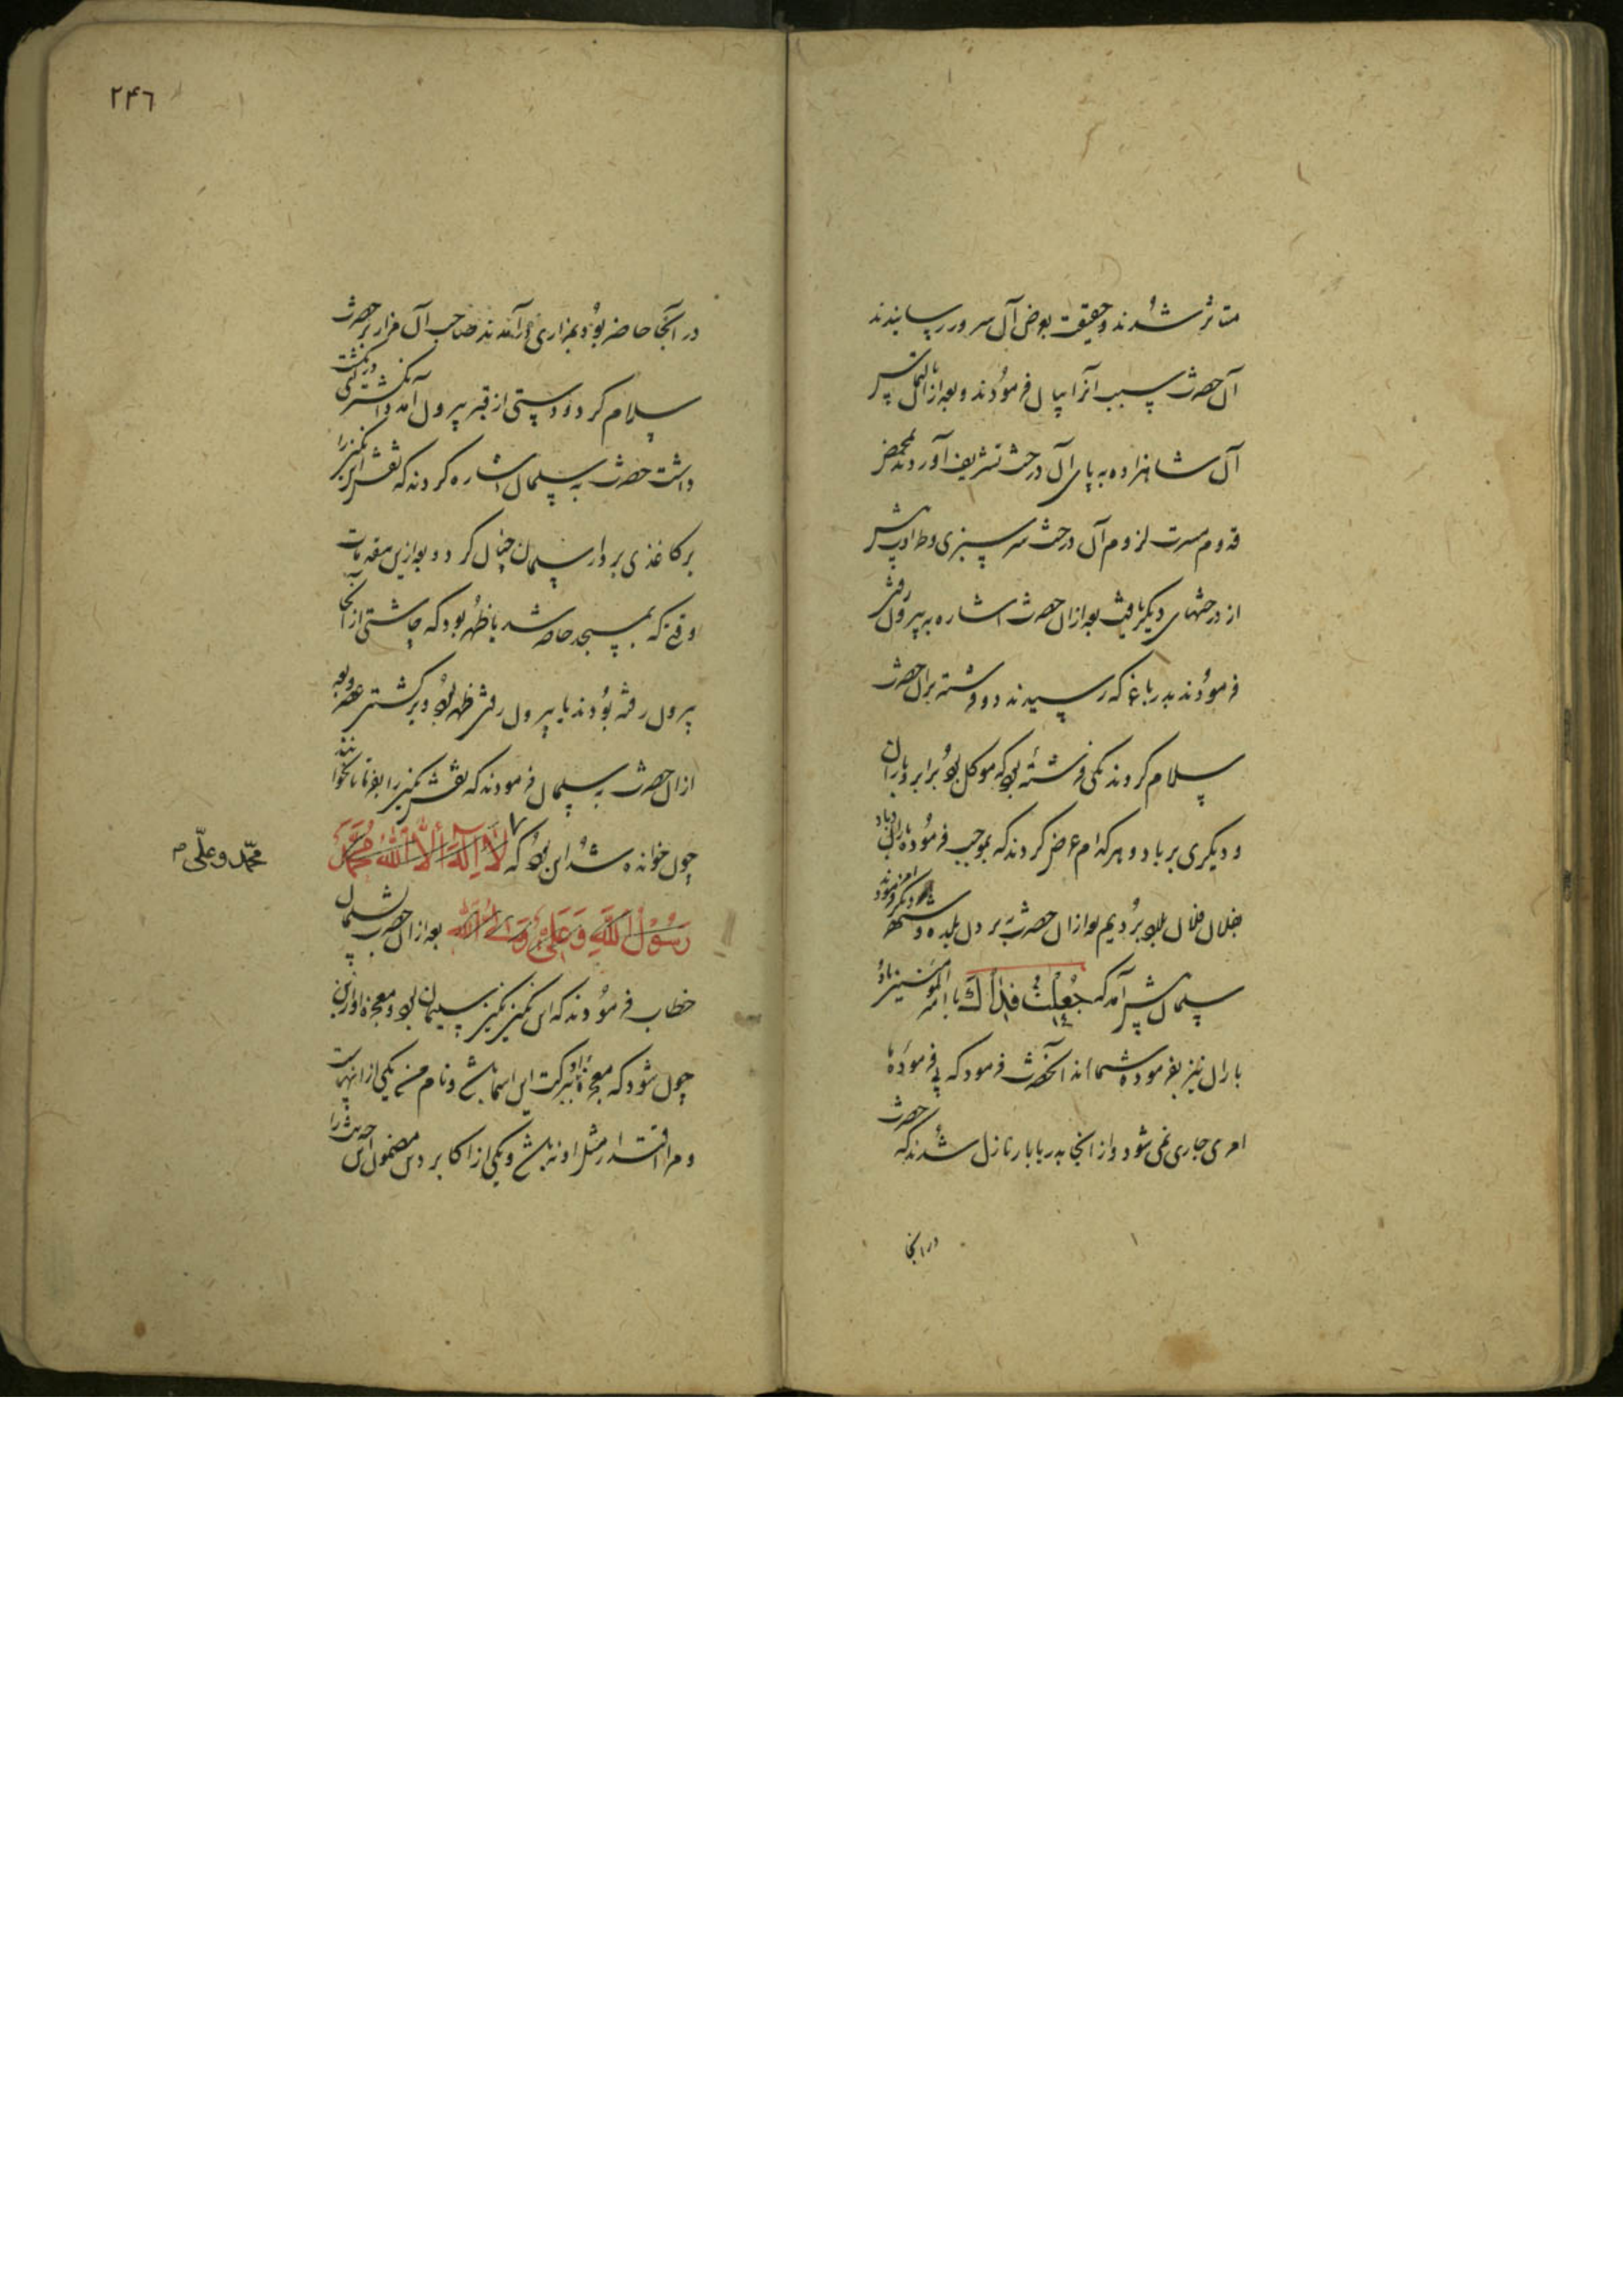 متاثر شدند و حقیقت بعرض آن سرور رسانیدند
آن حضرت سبب آنرا بیان فرمودند و بعد از التماس
آن شاهزاده به پای آن درخت تشریف آوردند بمحض
قدوم مسرت لزوم آن درخت سرسبزی و طراوت بیش
از درختهای دیگر یافت بعد ازان حضرت اشاره به بیرون رفتن
فرمودند بدر باغ که رسیدند دو فرشته بران حضرت
سلام کردند یکی فرشته بود که موکل بود بر ابر و باران
و دیگری بر باد و هر کدام عرض کردند که بموجب فرموده باران و باد
بفلان فلان بلاد بردیم بعد ازان حضرت بردن بلده و
سلمان پیش آمد که جُعِلْتُ فِدَاكَ یا امیر المومنین باد و
باران نیز بفرموده شما اند آنحضرت فرمود که بی فرموده ما
امری جاری نمی شود و از انجا بدریا بار نازل شدند که حضرت
در انجا
۲۴۶
در آنجا حاضر بود بمزاری درآمدند صاحب آن مزار بر حضرت
سلام کرد و دستی از قبر بیرون آمد و انگشتری در انگشت
داشت حضرت به سلمان اشاره کردند که نقش این نگین را
بر کاغذی بردار سلمان چنان کرد و بعد ازین مقدمات
وقتی که بمسجد حاضر شد با ظهر بود که چاشتی از آنجا
بیرون رفته بودند یا بیرون رفتن ظهر بود و برگشتن عصر و بعد
ازان حضرت به سلمان فرمودند که نقش نگین را بفرما تا بخوانند
چون خوانده شد این بود که لَا اِلٰهَ اِلَّا اللّٰهُ مُحَمَّدٌ
محمّد و علی م
رَسُوْلُ اللّٰهِ وَ عَلِیٌّ وَلِیُّ اللّٰهِ بعد ازان حضرت بسلمان
خطاب فرمودند که این نگین نگین سلیمان بود و معجزه او ازین
چون شود که معجزه او ببرکت این اسما باشد و نام من یکی ازانهاست
و مرا اقتدار مثل او نباشد و یکی از اکابر دین مضمون این حدیث را